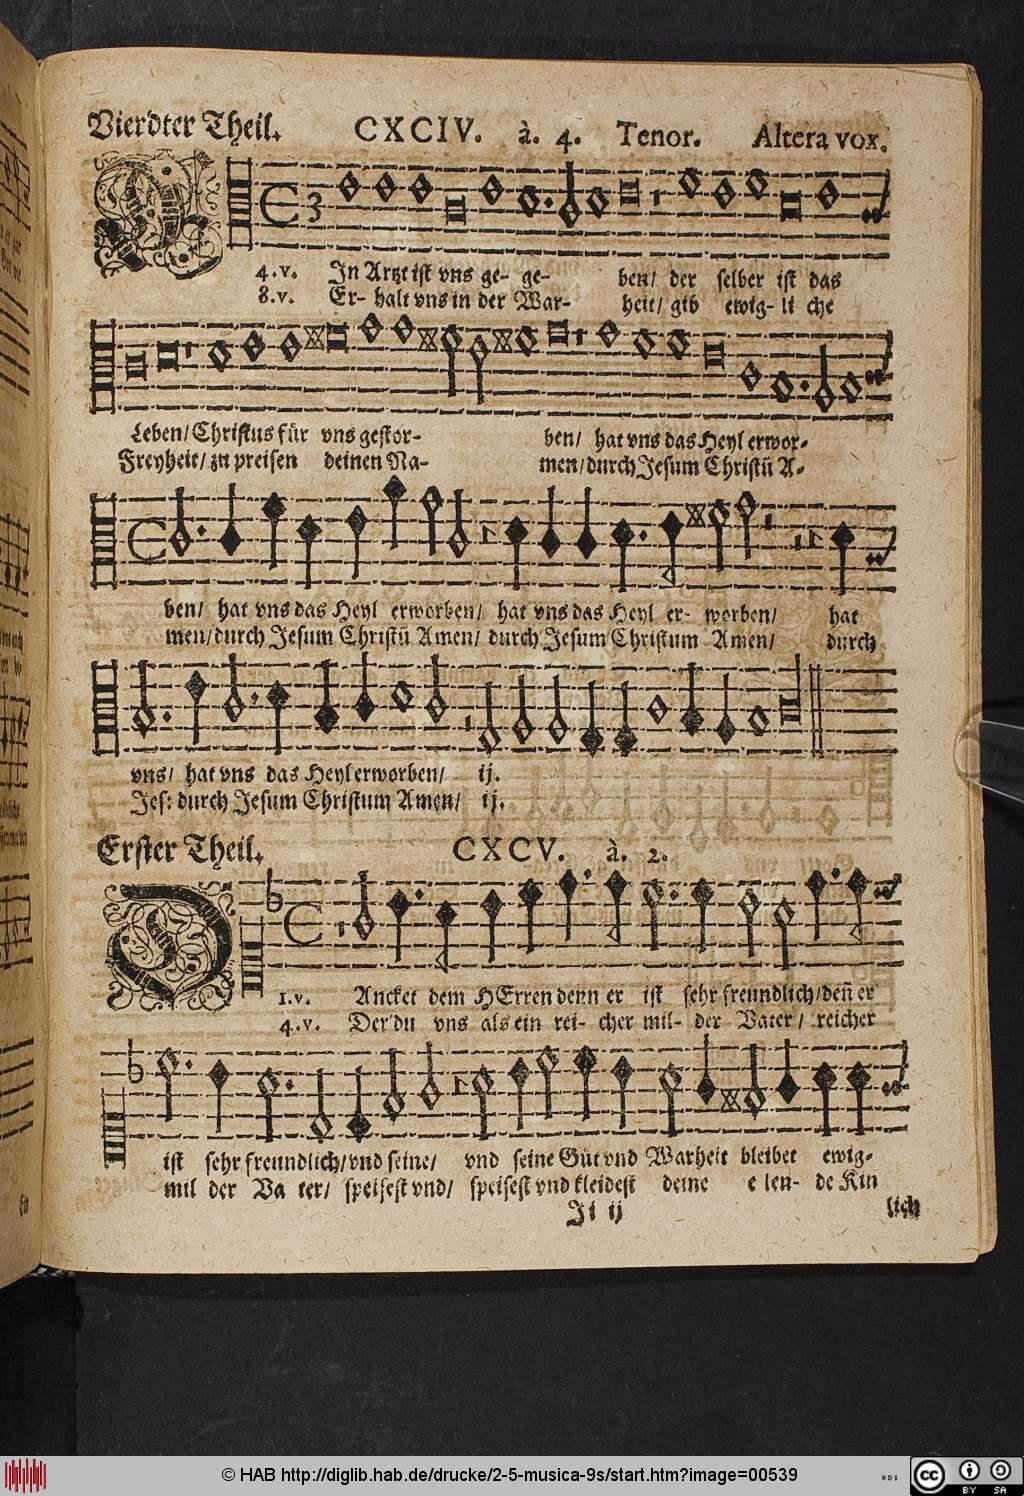 Vierdter Theil. CXCIV. à. 4. Tenor. Altera vox.
4.v. In Artzt ist vns ge- ge- ben/ der selber ist das
8.v. Er- halt vns in der War- heit/ gib ewig- li che
Leben/ Christus für vns gestor- ben/ hat vns das Heyl erwor-
Freyheit/ zu preisen deinen Na- men/ durch Jesum Christū A-
ben/ hat vns das Heyl erworben/ hat vns das Heyl er- worben/ hat
men/ durch Jesum Christū Amen/ durch Jesum Christum Amen/ durch
vns/ hat vns das Heyl erworben/ ij.
Jes: durch Jesum Christum Amen/ ij.
Erster Theil. CXCV. à. 2.
D
1.v. Ancket dem HErren denn er ist sehr freundlich/ deñ er
4.v. Der du vns als ein rei- cher mil- der Vater/ reicher
ist sehr freundlich/ vnd seine/ vnd seine Güt vnd Warheit bleibet ewig-
mil der Va ter/ speisest vnd/ speisest vnd kleidest deine e len- de Kin
Ji ij lich
© HAB http://diglib.hab.de/drucke/2-5-musica-9s/start.htm?image=00539
cc BY SA